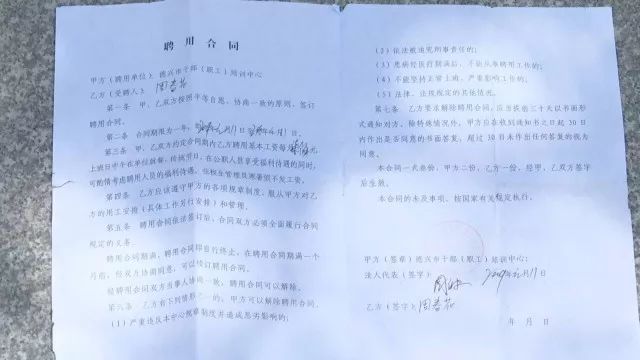 聘用合同
甲方(聘用单位):德兴市干部(职工)培训中心
乙方(受聘人):周春花
第一条 甲、乙双方按照平等自愿、协商一致的原则,签订
聘用合同。
第二条 合同期限为一年,
第三条 甲、乙双方约定合同期内乙方聘用基本工资每
上班日中午在单位就餐,
可酌情考虑聘用人员的福利待遇。
第四条 乙方应该遵守甲方的各项规章制度,服从甲方对乙
方的用工安排(具体工作另行安排)和管理。
第五条 聘用合同依法签订后,合同双方必须全面履行合同
规定的义务。
聘用合同期满,聘用合同即自行终止,在聘用合同期满一个
月前,经双方协商同意,可以续订聘用合同。
经聘用合同双方当事人协商一致,聘用合同可以解除。
第六条 乙方有下列情形之一的,甲方可以解除聘用合同。
(1)严重违反本中心规章制度并造成恶劣影响的;
(2)依法被追究刑事责任的;
(3)患病经医疗期满后,不能从事聘用工作的;
(4)不能坚持正常上班,严重影响工作的;
(5)法律、法规规定的其他情况。
第七条 乙方要求解除聘用合同,应当提前三十天以书面形
式通知对方。除特殊情况外,甲方应在收到通知书之日起 30
日内作出是否同意的书面答复,超过 30 日未作出任何答复的视为
同意。
本合同一式叁份,甲方二份,乙方一份,经甲、乙双方签字
后生效。
本合同的未及事项,按国家有关规定执行。
甲方(签章)德兴市干部(职工)培训中心:
法人代表(签字):
乙方(签字):周春花
年 月 日